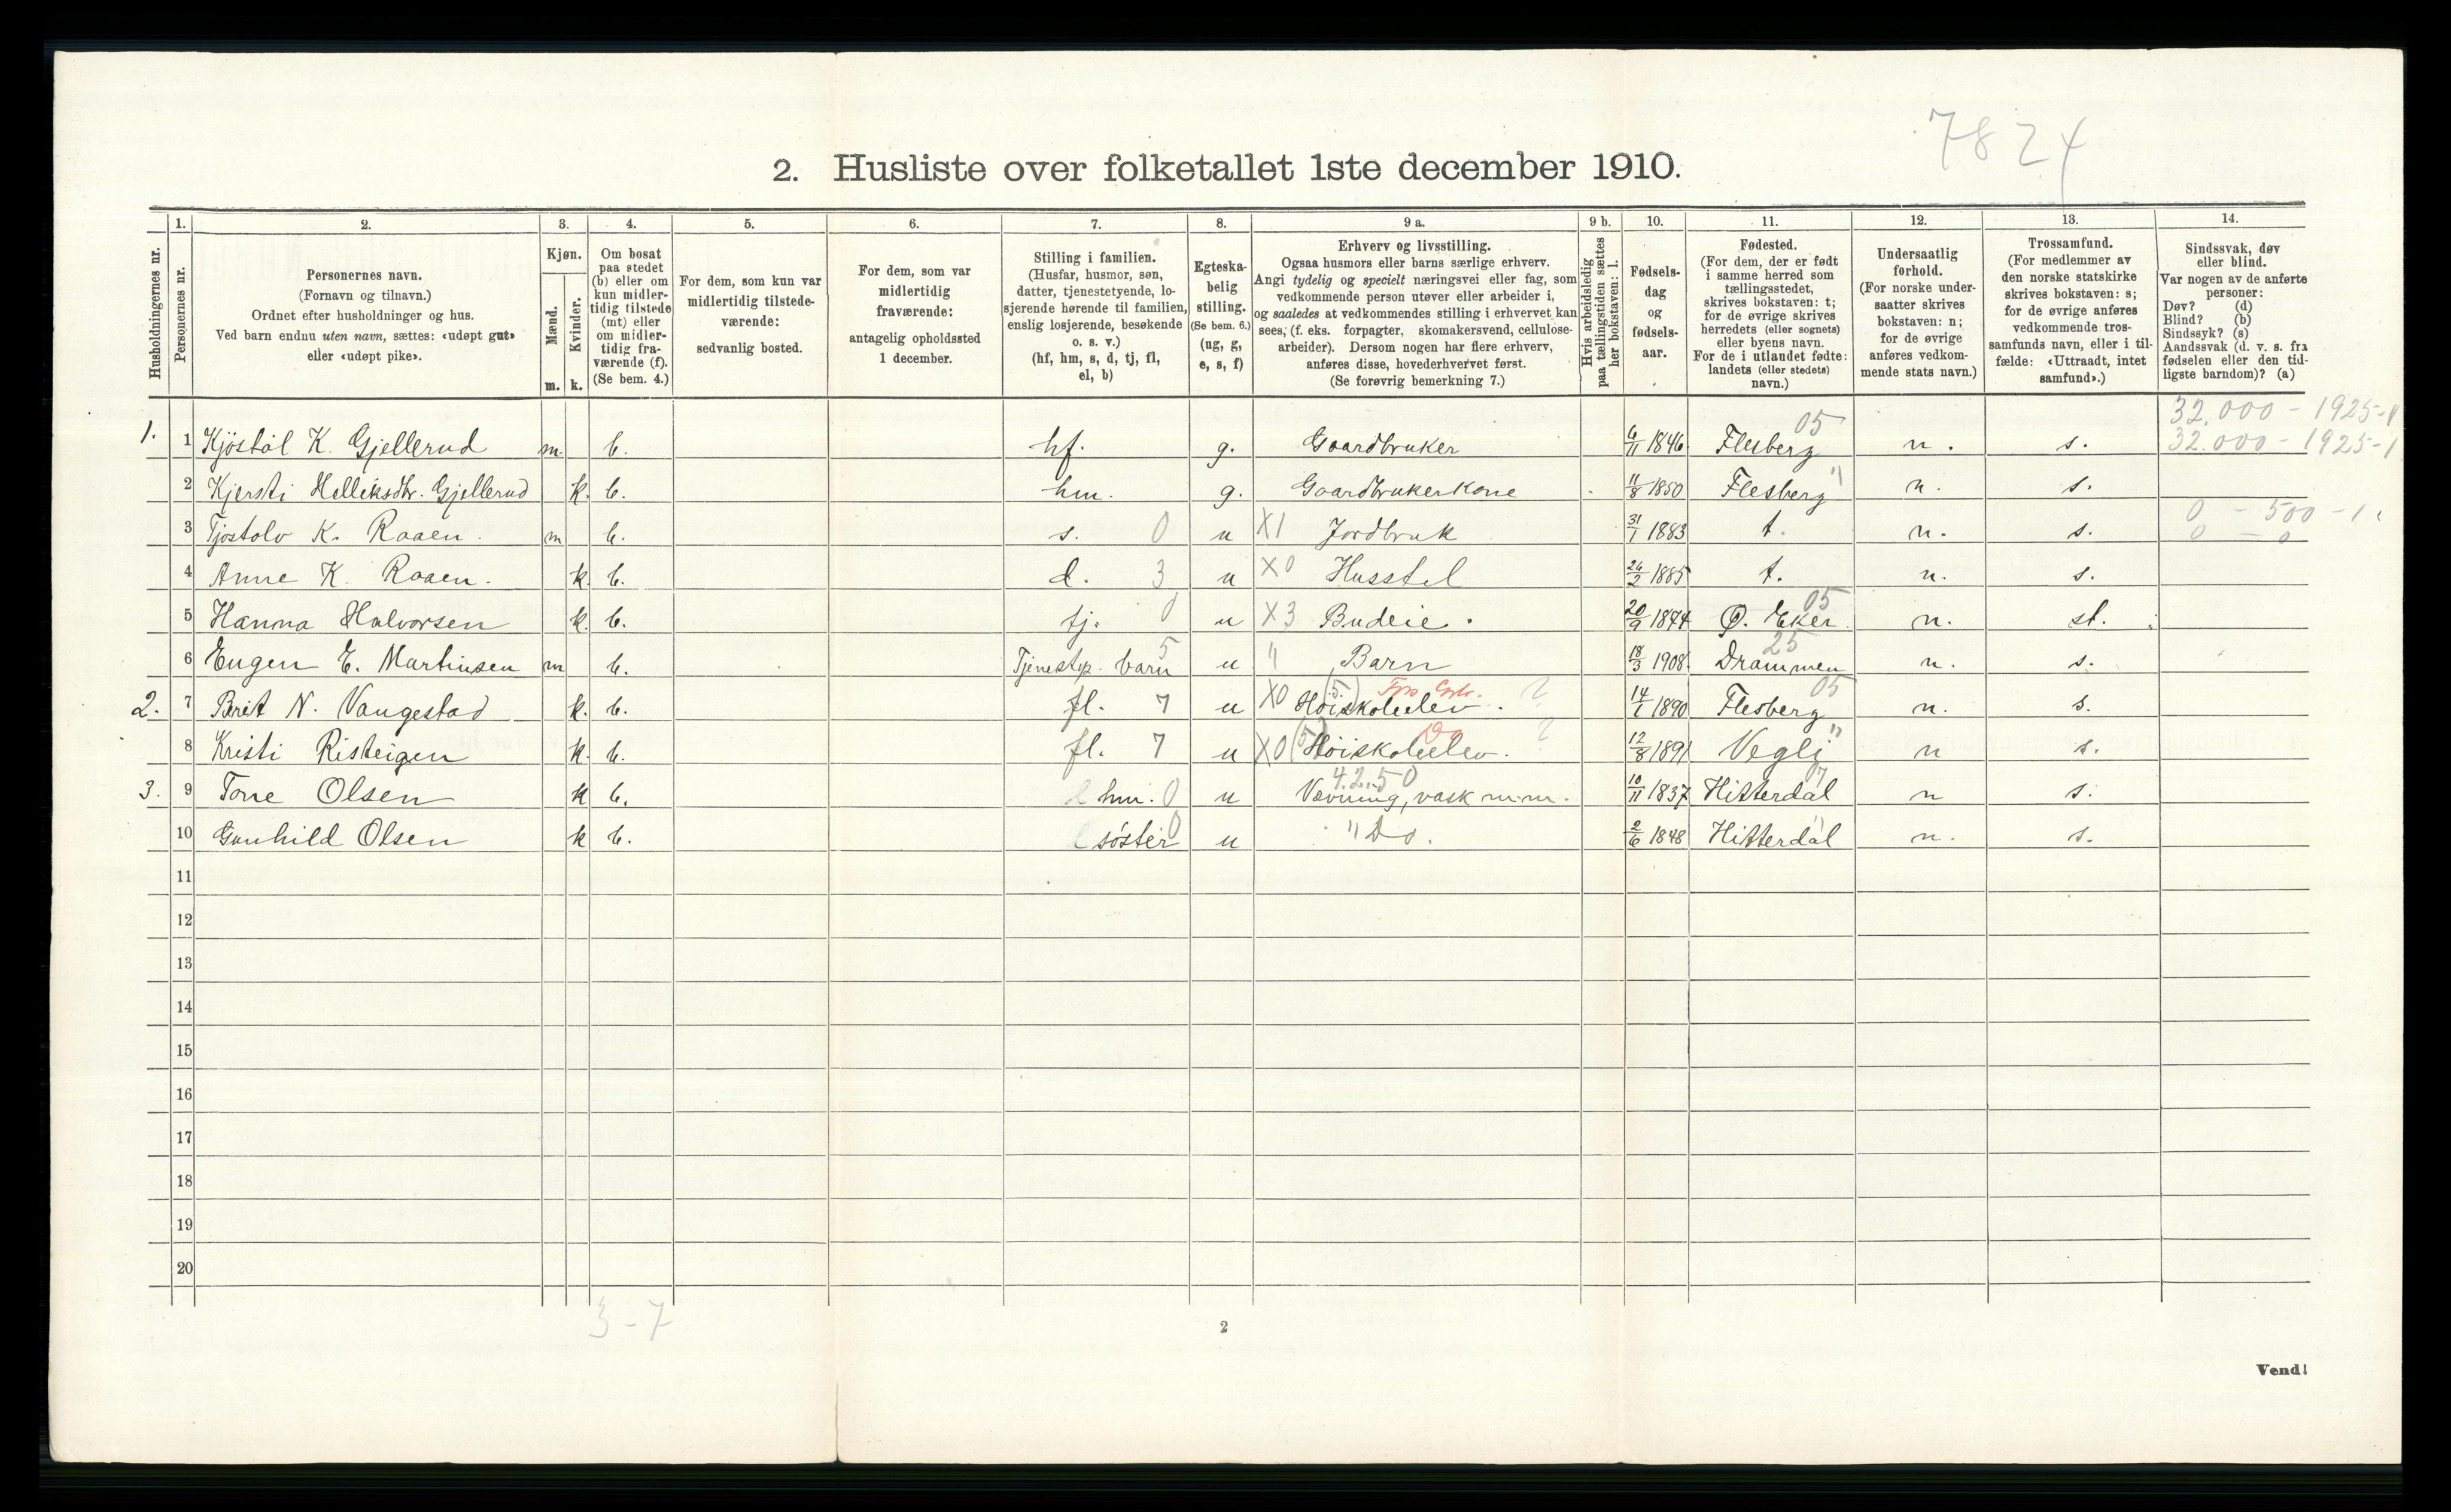 7824
2. Husliste over folketallet 1ste december 1910.
Husholdningernes nr.
1.
Personernes nr.
2.
Personernes navn.
(Fornavn og tilnavn.)
Ordnet efter husholdninger og hus.
Ved barn endnu uten navn, sættes: «udøpt gut»
eller «udøpt pike».
3.
Kjøn.
Mænd.
m.
Kvinder.
k.
4.
Om bosat
paa stedet
(b) eller om
kun midler-
tidig tilstede
(mt) eller
om midler-
tidig fra-
værende (f).
(Se bem. 4.)
5.
For dem, som kun var
midlertidig tilstede-
værende:
sedvanlig bosted.
6.
For dem, som var
midlertidig
fraværende:
antagelig opholdssted
1 december.
7.
Stilling i familien.
(Husfar, husmor, søn,
datter, tjenestetyende, lo-
sjerende hørende til familien,
enslig losjerende, besøkende
o. s. v.)
(hf, hm, s, d, tj, fl,
el, b)
8.
Egteska-
belig
stilling.
(Se bem. 6.)
(ug, g,
e, s, f)
9 a.
Erhverv og livsstilling.
Ogsaa husmors eller barns særlige erhverv.
Angi tydelig og specielt næringsvei eller fag, som
vedkommende person utøver eller arbeider i,
og saaledes at vedkommendes stilling i erhvervet kan
sees, (f. eks. forpagter, skomakersvend, cellulose-
arbeider). Dersom nogen har flere erhverv,
anføres disse, hovederhvervet først.
(Se forøvrig bemerkning 7.)
9 b.
Hvis arbeidsledig
paa tællingstiden sættes
her bokstaven: l.
10.
Fødsels-
dag
og
fødsels-
aar.
11.
Fødested.
(For dem, der er født
i samme herred som
tællingsstedet,
skrives bokstaven: t;
for de øvrige skrives
herredets (eller sognets)
eller byens navn.
For de i utlandet fødte:
landets (eller stedets)
navn.)
12.
Undersaatlig
forhold.
(For norske under-
saatter skrives
bokstaven: n;
for de øvrige
anføres vedkom-
mende stats navn.)
13.
Trossamfund.
(For medlemmer av
den norske statskirke
skrives bokstaven: s;
for de øvrige anføres
vedkommende tros-
samfunds navn, eller i til-
fælde: «Uttraadt, intet
samfund».)
14.
Sindssvak, døv
eller blind.
Var nogen av de anførte
personer:
Døv? (d)
Blind? (b)
Sindssyk? (s)
Aandssvak (d. v. s. fra
fødselen eller den tid-
ligste barndom)? (a)
05 32.000 - 1925-1
1. 1 Kjöstöl K. Gjellerud m. b. hf. g. Gaardbruker 6/11 1846 Flesberg n. s. 32.000 - 1925-1
2 Kjersti Helliksdtr. Gjellerud k. b. hm. g. Gaardbrukerkone 11/8 1850 Flesberg " n. s.
0 - 500 - 1
3 Tjöstolv K. Raaen. m b. s. 0 u X1 Jordbruk 31/1 1883 t. n. s. 0 - 0
4 Anne K. Raaen. k. b. d. 3 u X0 Husstel 26/2 1885 t. n. s.
05
5 Hanna Halvorsen k. b. tj. 0 u X3 Budeie. 20/9 1874 Ø. Eker n. st.
5 25
6 Eugen E. Martinsen m b. Tjenestep. barn u " Barn 18/3 1908 Drammen n. s.
(5) 05
2. 7 Berit N. Vangestad k. b. fl. 7 u X0 Höiskoleelev. ? 14/1 1890 Flesberg n. s.
Do
8 Kristi Risteigen k. b. fl. 7 u X0 (5) Höiskoleelev. ? 12/8 1891 Vegli " n s.
42.50 07
3. 9 Tone Olsen k b. hm. 0 u Vævning, vask m.m. 10/11 1837 Hitterdal n s.
10 Gunhild Olsen k b. söster 0 u " Do. 2/6 1848 Hitterdal " n. s.
11
12
13
14
15
16
17
18
19
20
3-7
2
Vend!